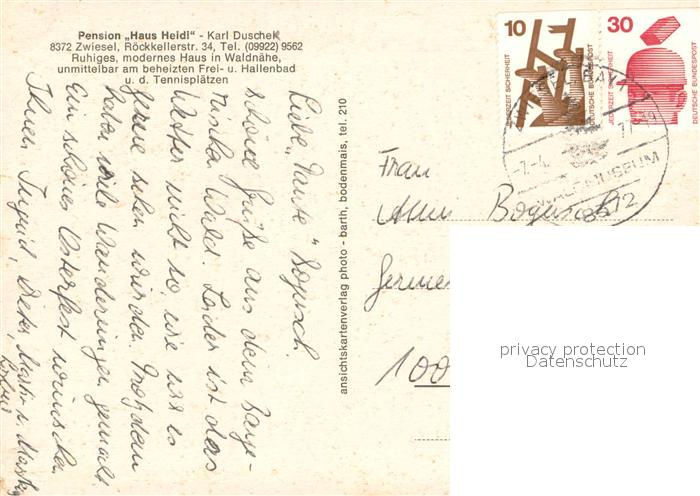 Pension „Haus Heidi" - Karl Duschek
8372 Zwiesel, Röckkellerstr. 34, Tel. (09922) 9562
Ruhiges, modernes Haus in Waldnähe,
unmittelbar am beheizten Frei- u. Hallenbad
u. d. Tennisplätzen
Liebe „Tante"
schöne Grüße aus dem Baye-
rischen Wald. Leider ist das
Wetter nicht so, wie wir es
gerne sehen würden. Trotzdem
haben viele Wanderungen gemacht
Ein schönes Osterfest wünschen
Ihnen Ingrid, Martin u.
ansichtskartenverlag photo - barth, bodenmais, tel. 210
10
JEDERZEIT SICHERHEIT
DEUTSCHE BUNDESPOST
30
JEDERZEIT SICHERHEIT
DEUTSCHE BUNDESPOST
-7.-4.
WALDMUSEUM
8372
Frau
100
privacy protection
Datenschutz